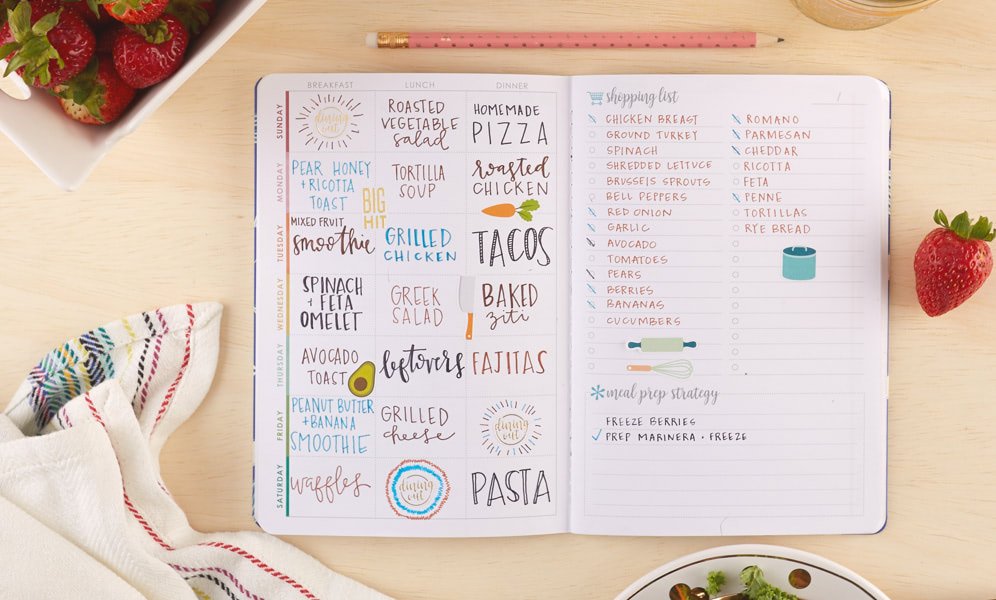 BREAKFAST LUNCH DINNER
SUNDAY
dining
out
ROASTED
VEGETABLE
salad
HOMEMADE
PIZZA
MONDAY
PEAR HONEY
+ RICOTTA
TOAST
BIG
HIT
TORTILLA
SOUP
roasted
CHICKEN
TUESDAY
MIXED FRUIT
smoothie
GRILLED
CHICKEN
TACOS
WEDNESDAY
SPINACH
+ FETA
OMELET
GREEK
SALAD
BAKED
ziti
THURSDAY
AVOCADO
TOAST
leftovers
FAJITAS
FRIDAY
PEANUT BUTTER
+ BANANA
SMOOTHIE
GRILLED
cheese
dining
out
SATURDAY
waffles
dining
out
PASTA
shopping list
/
CHICKEN BREAST
GROUND TURKEY
SPINACH
SHREDDED LETTUCE
BRUSSELS SPROUTS
BELL PEPPERS
RED ONION
GARLIC
AVOCADO
TOMATOES
PEARS
BERRIES
BANANAS
CUCUMBERS
ROMANO
PARMESAN
CHEDDAR
RICOTTA
FETA
PENNE
TORTILLAS
RYE BREAD
meal prep strategy
FREEZE BERRIES
✓ PREP MARINERA + FREEZE